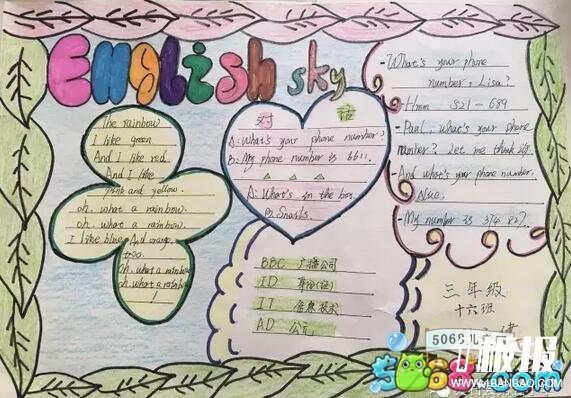 ENGLISH sky
The rainbow
I like green
And I like red
And I like
pink and yellow.
oh, what a rainbow.
oh, what a rainbow.
I like blue And orange,
too.
oh, what a rainbow
oh, what a rainbow
!
对话
A: What's your phone number?
B: My phone number is 3611.
A: What's in the box.
B: Snails.
BBC 广播公司
ID 身份(证)
IT 信息技术
AD 公元
-What's your phone
number, Lisa?
-Hmm 521-689
-Paul, what's your phone
number? Let me think
And what's your phone number,
Alice.
-My number is 376 827.
三年级
十六班
5068儿
板报
5068.com
WWW.1BANBAO.COM